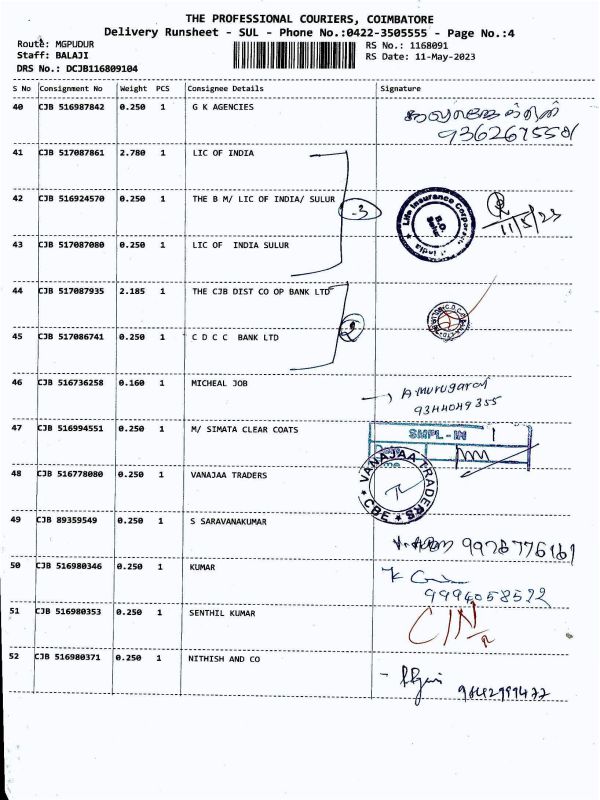 THE PROFESSIONAL COURIERS, COIMBATORE
Delivery Runsheet - SUL - Phone No.:0422-3505555 - Page No.:4
Route: MGPUDUR
RS No.: 1168091
Staff: BALAJI
RS Date: 11-May-2023
DRS No.: DCJB116809104
S No Consignment No Weight PCS Consignee Details Signature
40 CJB 516987842 0.250 1 G K AGENCIES
9362675581
41 CJB 517087861 2.780 1 LIC OF INDIA
42 CJB 516924570 0.250 1 THE B M/ LIC OF INDIA/ SULUR
-3
Life Insurance Corporation
11/5/23
43 CJB 517087080 0.250 1 LIC OF INDIA SULUR
44 CJB 517087935 2.185 1 THE CJB DIST CO OP BANK LTD
2
45 CJB 517086741 0.250 1 C D C C BANK LTD
46 CJB 516736258 0.160 1 MICHEAL JOB
A.Murugaraj
9344049355
47 CJB 516994551 0.250 1 M/ SIMATA CLEAR COATS
SMPL-IN
48 CJB 516778080 0.250 1 VANAJAA TRADERS
VANAJAA TRADERS
CBE
49 CJB 89359549 0.250 1 S SARAVANAKUMAR
9978776161
50 CJB 516980346 0.250 1 KUMAR
9994058522
51 CJB 516980353 0.250 1 SENTHIL KUMAR
C/N
52 CJB 516980371 0.250 1 NITHISH AND CO
9842999477